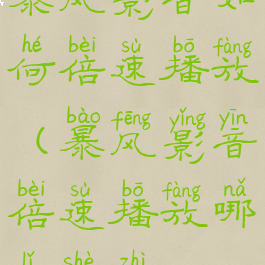 暴风影音如
hé bèi sù bō fàng
何倍速播放
bào fēng yǐng yīn
(暴风影音
bèi sù bō fàng nǎ
倍速播放哪
lǐ shè zhì